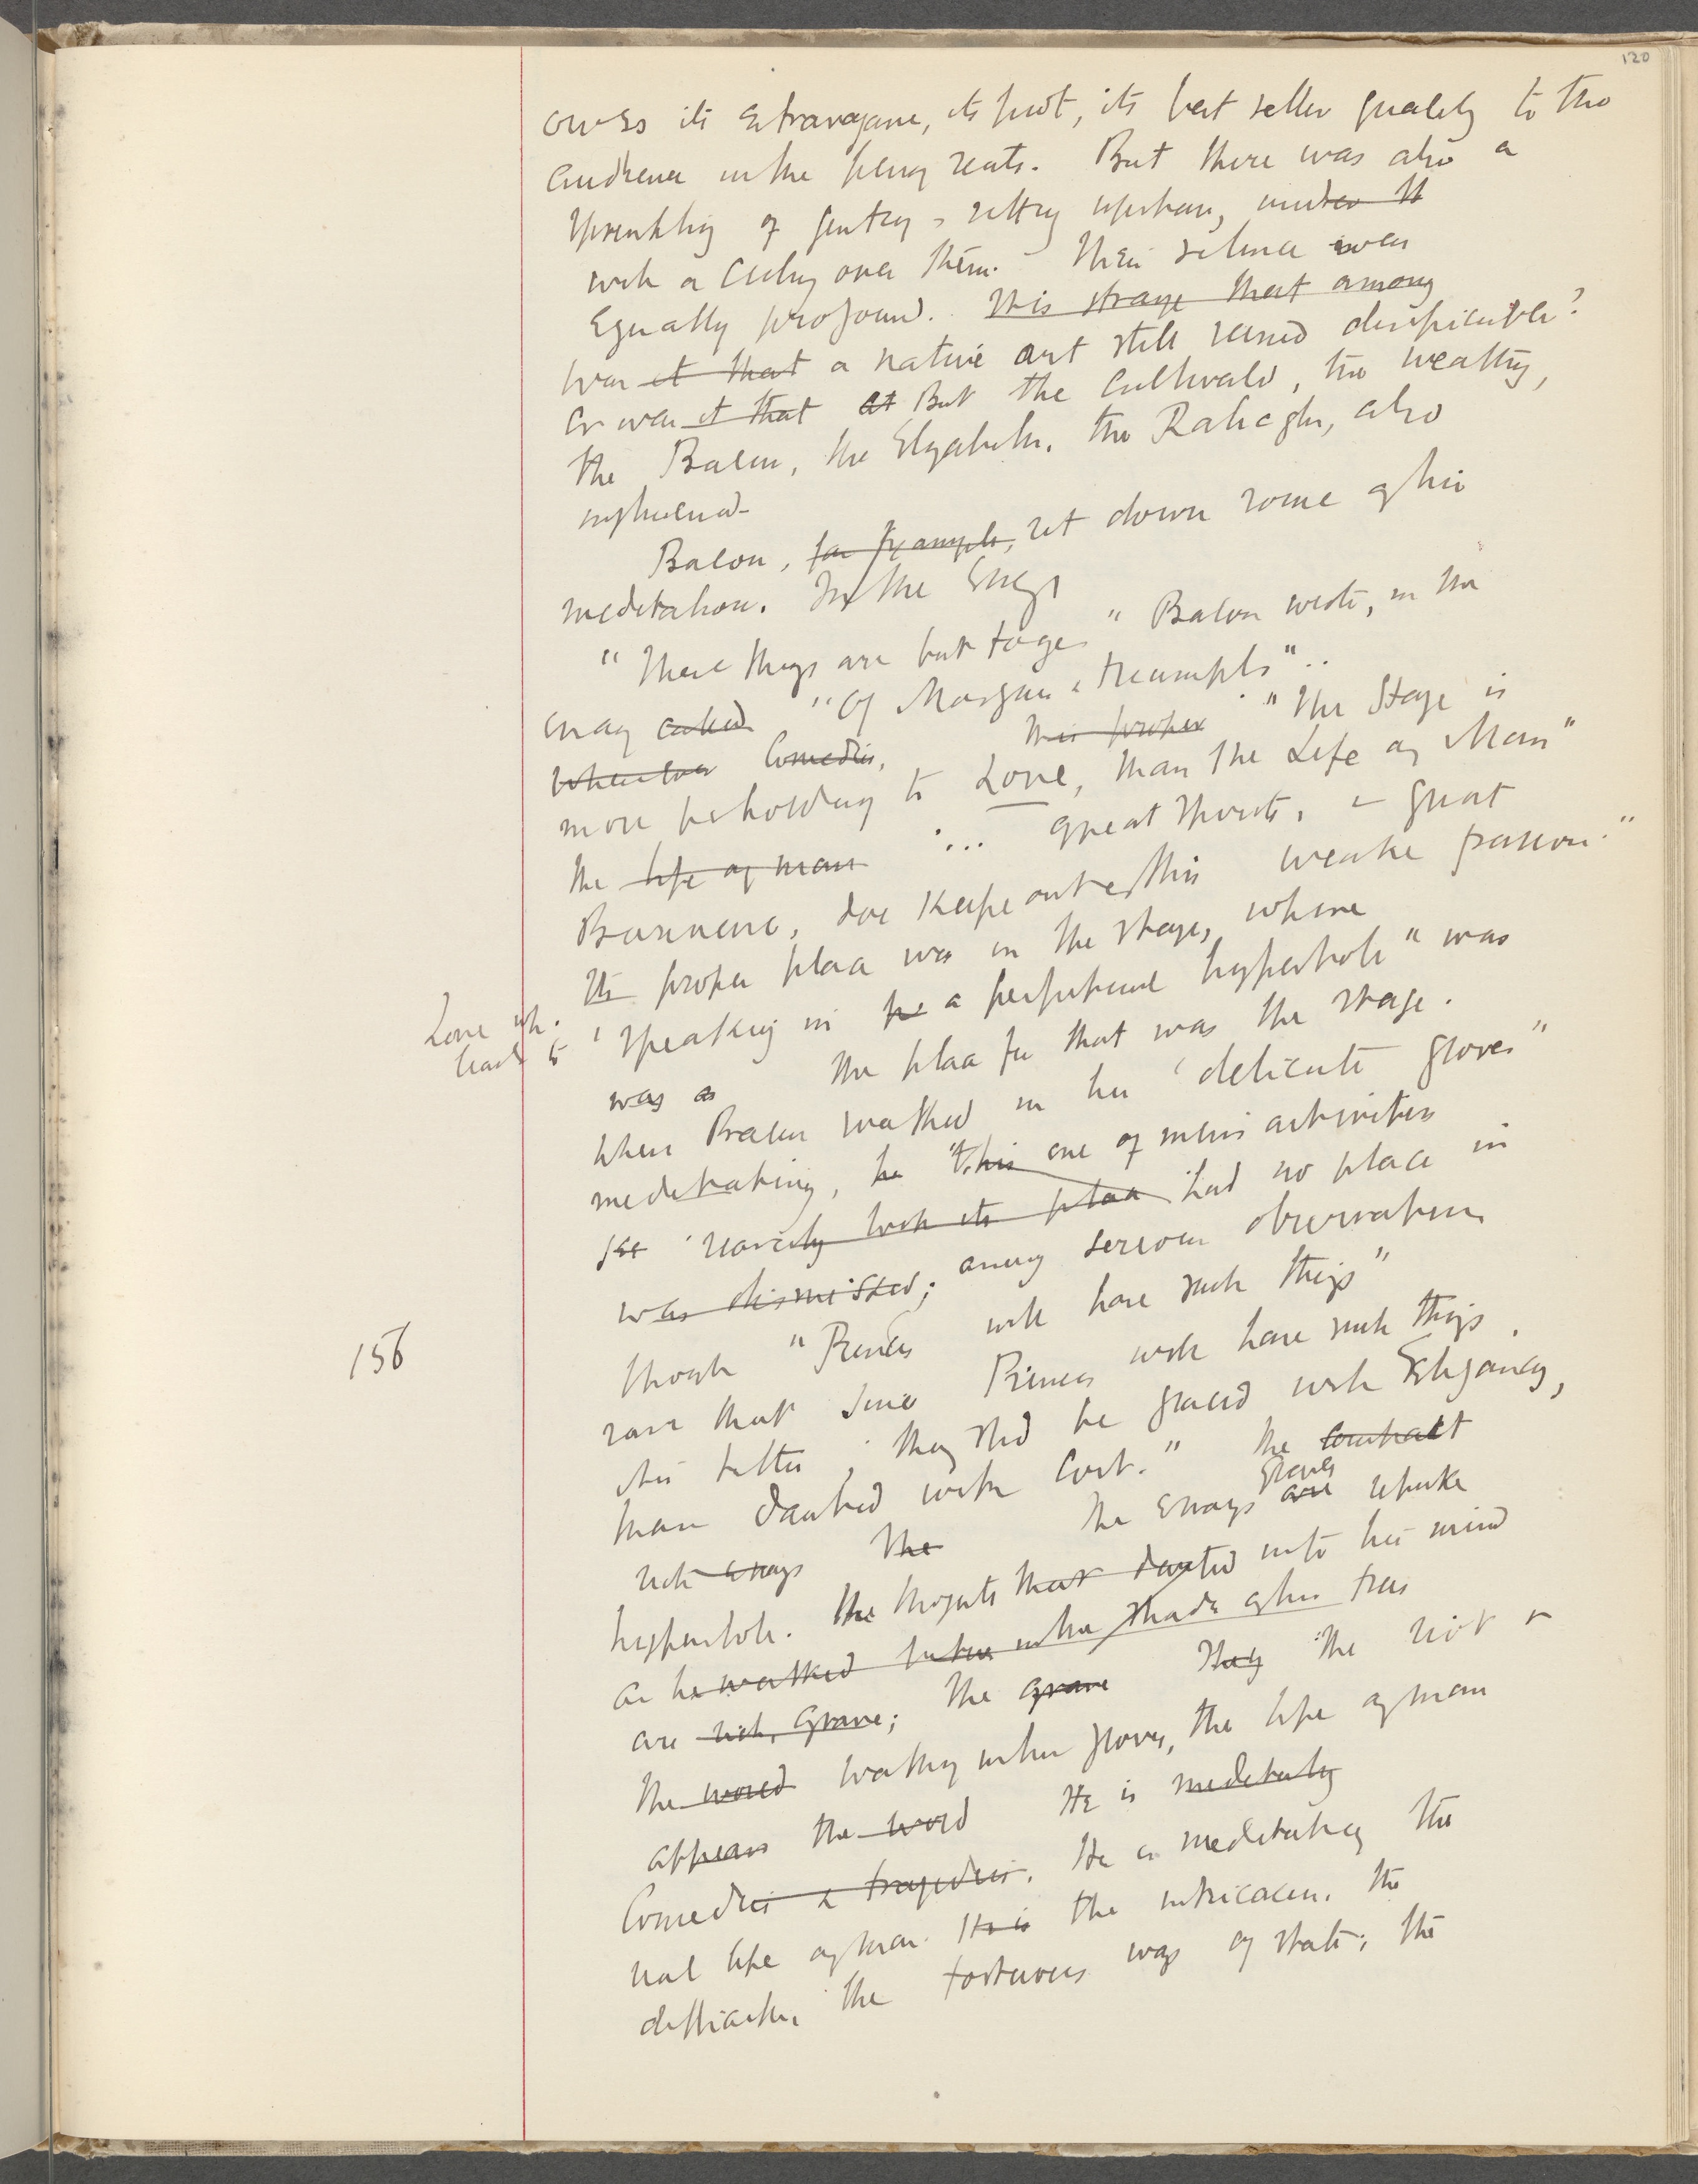 120
owes its extravagance, its plot, its best seller quality to the
audience in the penny seats. But there was also a
sprinkling of gentry, sitting upstairs, under the
with a ceiling over them. Their silence was
equally profound. It is strange that among
was it that a native art still seemed despicable?
or was it that at But the cultivated, the wealthy,
the Bacons, the Elizabeths, the Raleghs, also
Bacon, for example, set down some of his
meditations. In the Essays
"These things are but toyes" Bacon wrote, in the
essay called "Of Masques & triumphs"..
whenever Comedies, This proper "The Stage is
more beholding to Love, than the Life of Man"
the life of man ... great Spirits, & great
Businesse, doe keepe out this weake passion."
Its proper place was on the stage, where
Love wh.
leads to
'speaking in he a perpetual hyperbole" was
was as the place for that was the stage.
When Bacon walked in his 'delicate groves"
meditating, he this one of mens activities
scarcely took its place had no place in
was dismissed; among serious observations
though "Princes will have such things"
156
save that since Princes will have such things,
tis better they shd be graced with Elegancy,
than daubed with cost." The contrast
rich essays The The Essays groves are rebuke
hyperbole. The thoughts that darted into his mind
as he walked in the shade of his trees
are rich, grave; The grave They The riot &
the word walking in his groves, the life of man
appears the word He is meditating
Comedies & tragedies. He is meditating the
real life of man. He is the intricacies, the
difficulties, the tortuous ways of state; the